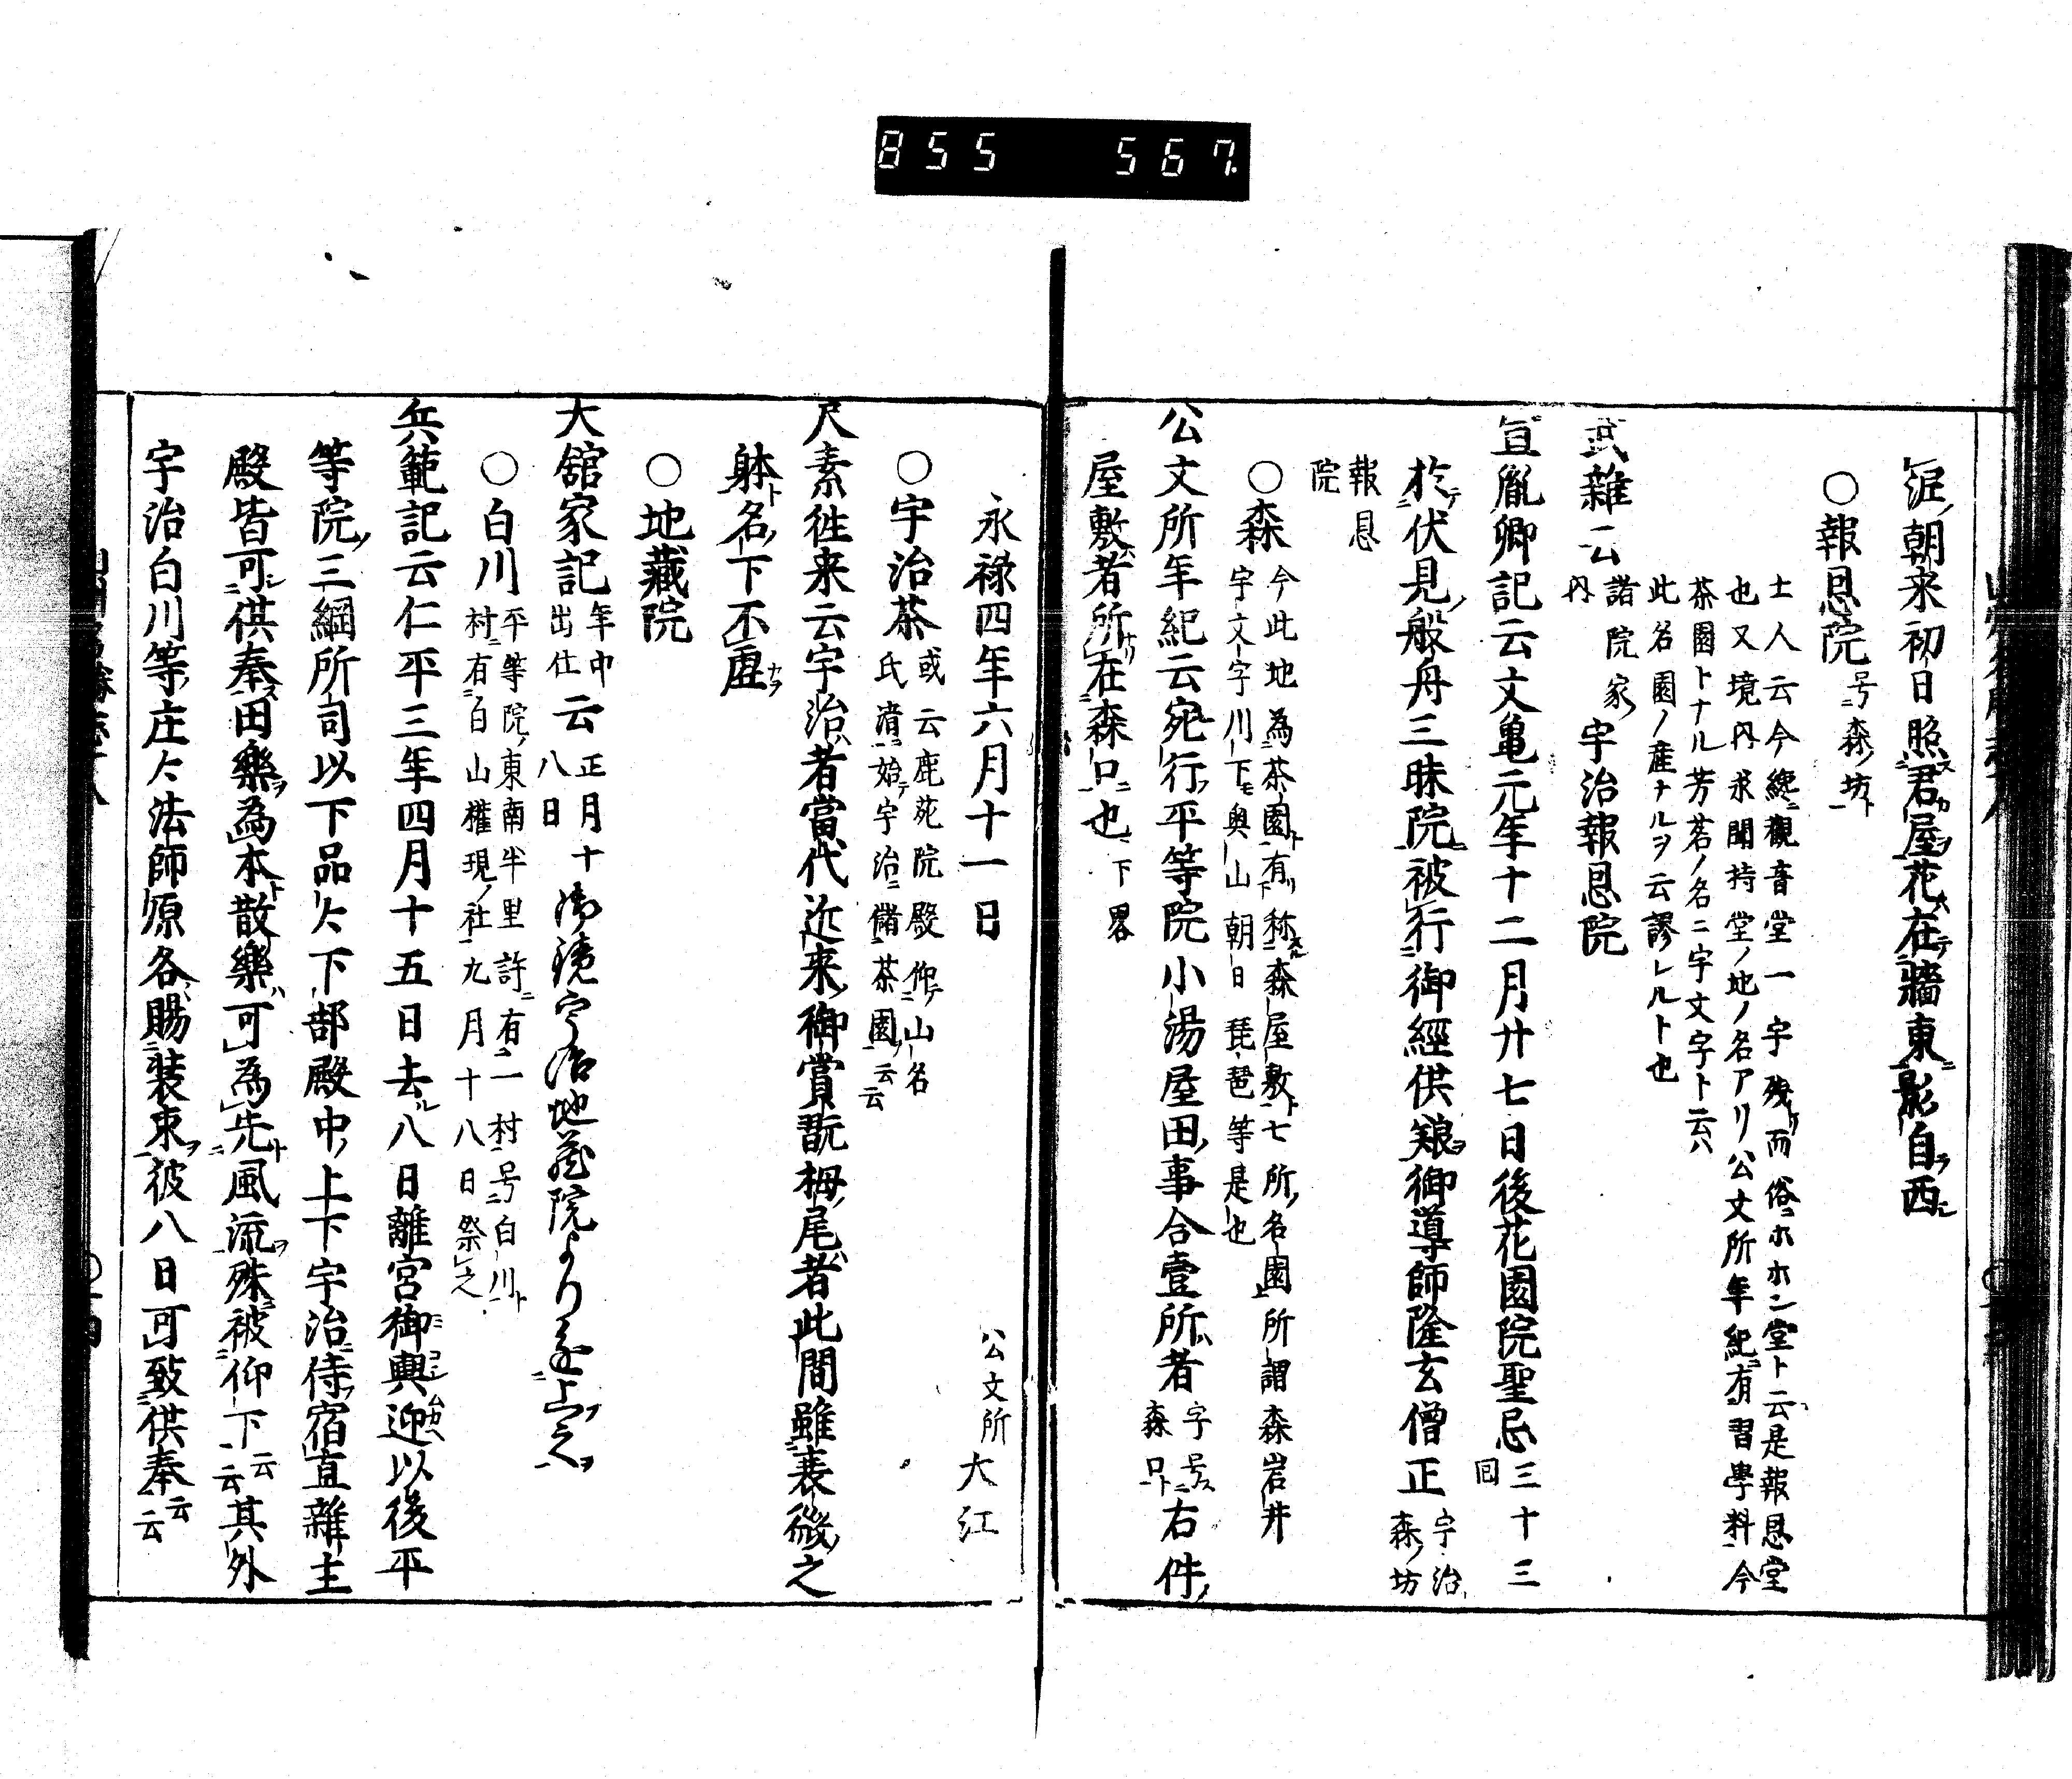 855 567
泥朝来初日照君屋花在牆東影自西
○報恩院 号森坊
士人云今纔觀音堂一宇残而俗ニホホン堂ト云是報恩堂
也又境内求聞持堂ノ地ノ名アリ公文所年紀有習學料今
茶園トナル芳茗ノ名ニ宇文字ト云ハ
此名園ノ産ナルヲ云謬レルト也
武雜云 諸院家内 宇治報恩院
宣胤卿記云文亀元年十二月廿七日後花園院聖忌三十三回
於伏見般舟三昧院被行御經供養御導師隆玄僧正 宇治森坊
報恩院
○森 今此地為茶園有称森屋敷七所名園所謂森岩井
宇文字川下奥山朝日琵琶等是也
公文所年紀云宛行平等院小湯屋田事合壹所者 字号森口 右件
屋敷者所在森口也 下畧
永禄四年六月十一日
公文所 大江
○宇治茶 或云鹿苑院殿仰山名
氏清始宇治儲茶園云云
尺素徃来云宇治者當代近来御賞翫栂尾者此間雖衰微之
躰名下不虚
○地蔵院
大舘家記 年中出仕 云 正月十八日 御鏡宇治地蔵院より進上之
○白川 平等院東南半里許有一村号白川
村有白山權現ノ社九月十八日祭之
兵範記云仁平三年四月十五日去八日離宮御輿迎以後平
等院三綱所司以下品々下部殿中上下宇治侍宿直雜主
殿皆可供奉田樂為本散樂可為先風流殊被仰下云云其外
宇治白川等庄々法師原各賜装束彼八日可致供奉云云